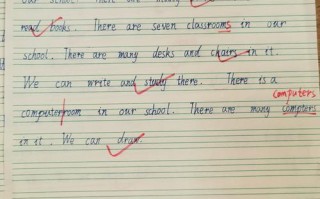 our school. There are many
read books. There are seven classrooms in our
school. There are many desks and chairs in it.
We can write and study there. There is a
computers
computer room in our school. There are many compters
in it. We can draw.